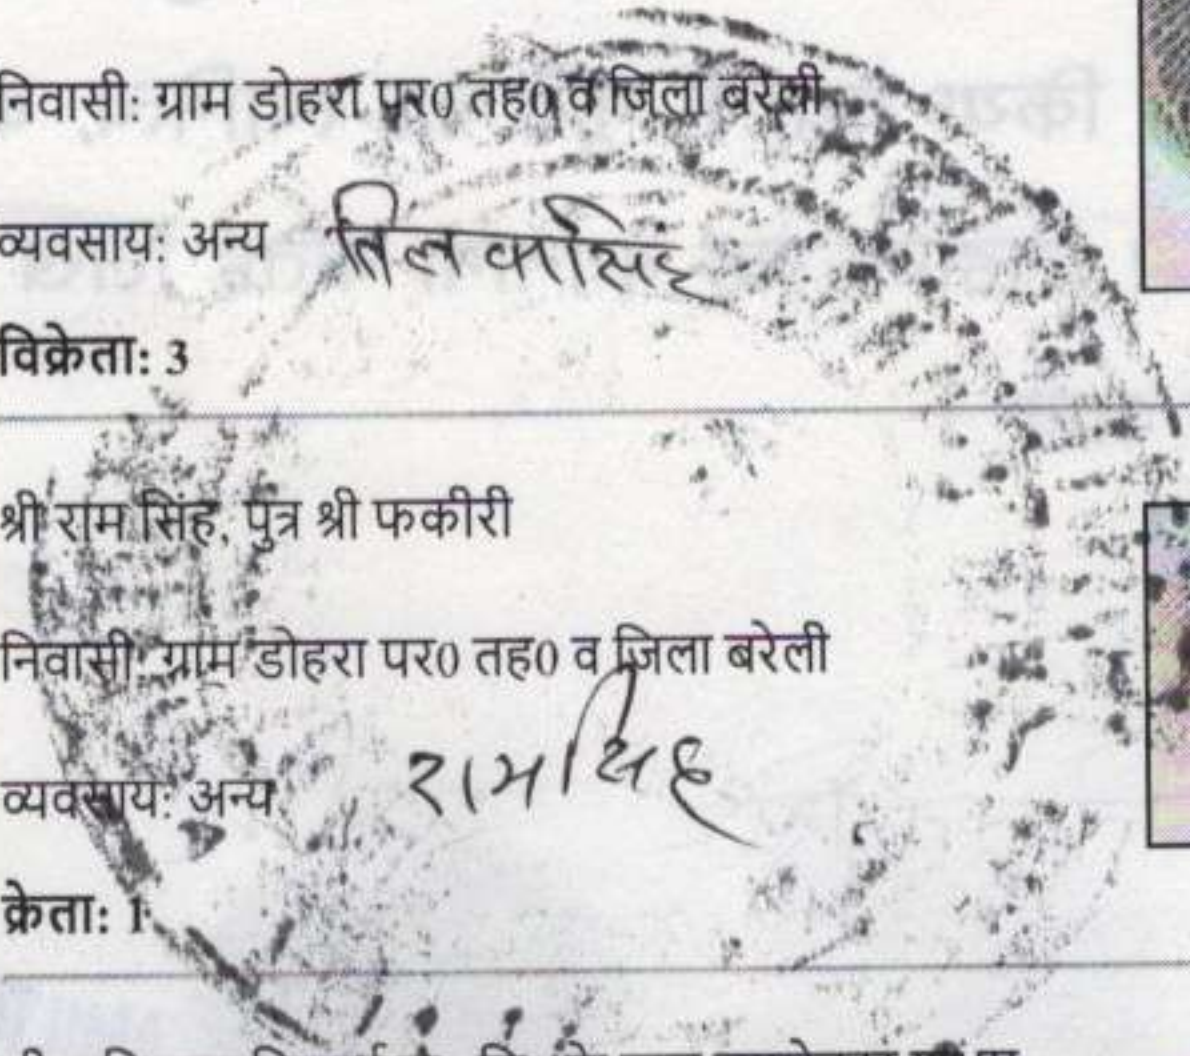 निवासी: ग्राम डोहरा पर0 तह0 व जिला बरेली
व्यवसाय: अन्य तिलकसिंह
विक्रेता: 3
श्री राम सिंह, पुत्र श्री फकीरी
निवासी: ग्राम डोहरा पर0 तह0 व जिला बरेली
व्यवसाय: अन्य रामसिह
क्रेता: 1